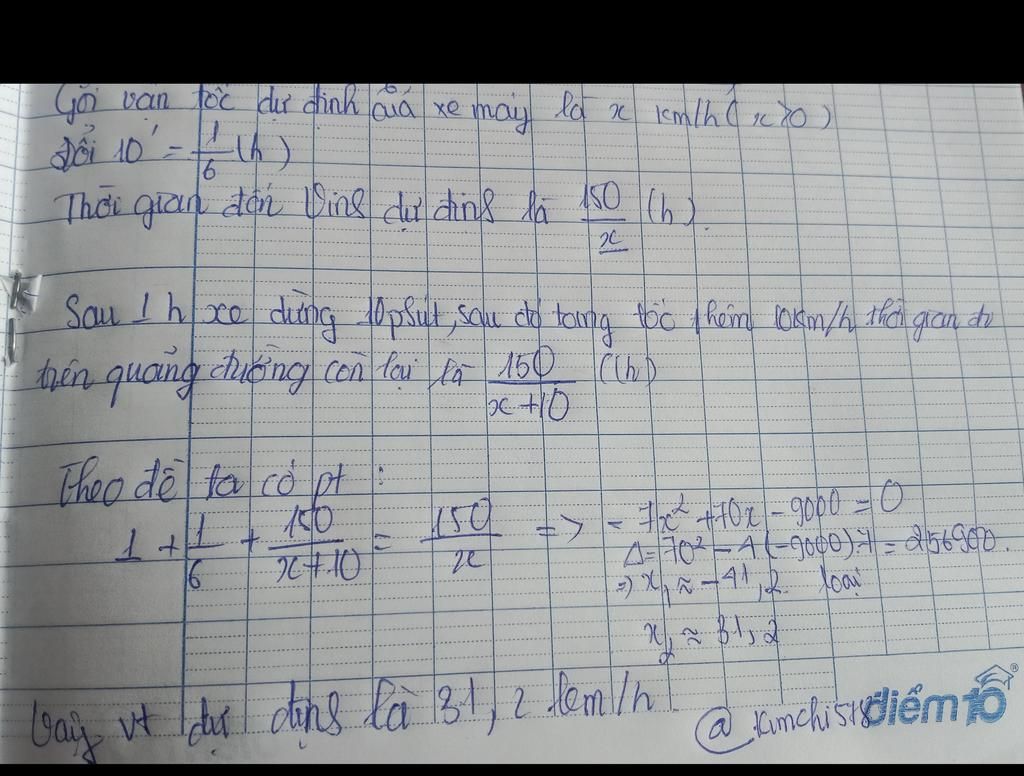 Gọi vận tốc dự định của xe máy là x km/h (x>0)
Đổi 10' = 1/6 (h)
Thời gian đến Vinh dự định là 150/x (h).
Sau 1h xe dừng 10 phút, sau đó tăng tốc thêm 10km/h thời gian đi
trên quãng đường còn lại là 150/(x+10) (h)
Theo đề ta có pt :
1 + 1/6 + 150/(x+10) = 150/x => - 7x² + 70x - 9000 = 0
Δ = 70² - 4(-9000).7 = 256900.
=> x₁ ≈ -41,2 loại
x₂ ≈ 31,2
Vậy vt dự định là 31,2 km/h
@kimchi518
điểm10
®